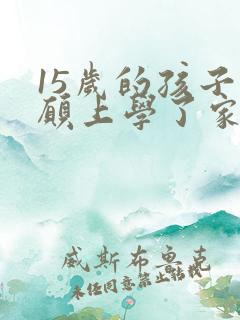 15歲的孩子
願上學了家
威斯布魯克
未经同意禁止转载